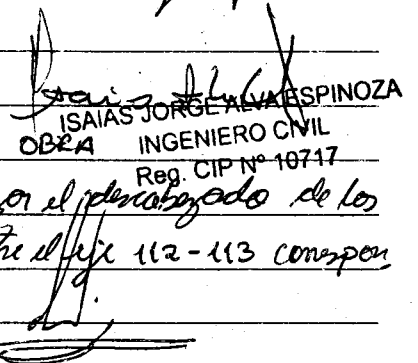 ISAIAS JORGE ALVA ESPINOZA
OBRA INGENIERO CIVIL
Reg. CIP Nº 10717
or el descabezado de los
tre el eje 112-113 correspon